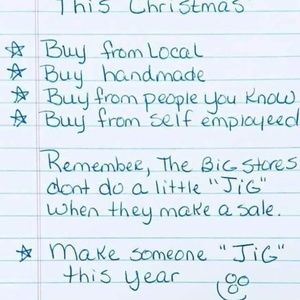 This Christmas
☆ Buy from Local
☆ Buy handmade
☆ Buy from people you know
☆ Buy from self employeed
Remember, The BiG stores
dont do a little "JiG"
when they make a sale.
☆ Make someone "JiG"
this year